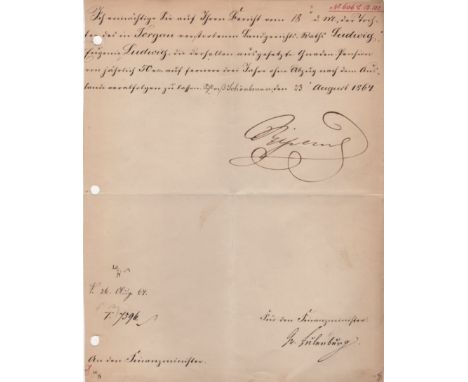 № 606
Ich ermächtige Sie auf Ihren Bericht vom 18 d. M. der Toch-
ter des in Torgau verstorbenen Landgerichts-Raths Ludwig,
Eugenie Ludwig, die derselben ausgesetzte Gnaden Pension
von jährlich 50 auf fernere drei Jahre ohne Abzug nach dem Aus-
lande verabfolgen zu lassen. Schloß Schönbrunn, den 23 August 1864
26. Aug 64.
Für den Finanzminister.
Gr. Eulenburg.
An den Finanzminister.